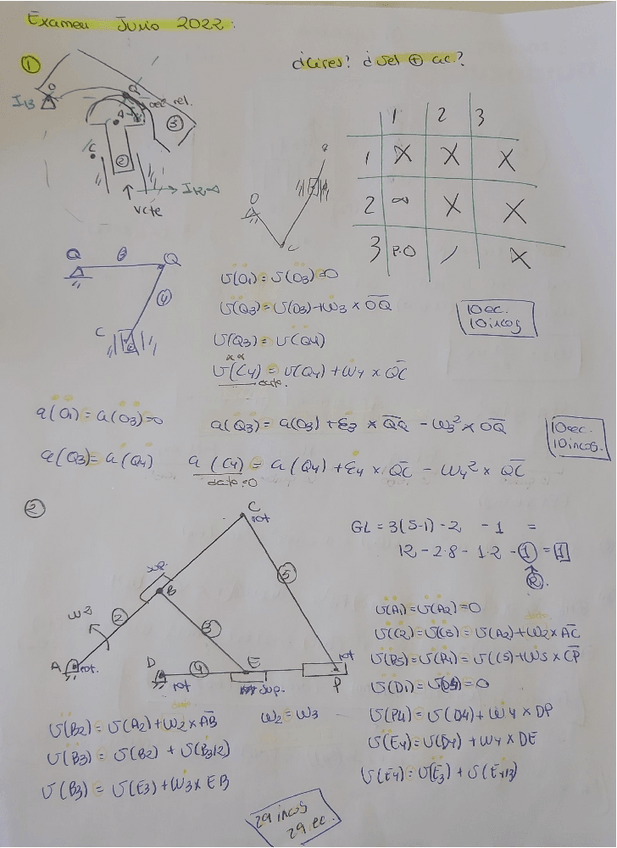 Examen Junio 2022.
① ¿CIRes? ¿vel ⊕ ac.?
O Q rel.
I13
A
③
C
②
vcte
I12 ∞
1 2 3
1 X X X
2 ∞ X X
3 P.O / X
O
C
O θ Q
④
C
v(O1) = v(O3) = 0
v(Q3) = v(O3) + ω3 × OQ
v(Q3) = v(Q4)
v(C4) = v(Q4) + ω4 × QC
dato.
10 ec.
10 incos
a(O1) = a(O3) = 0 a(Q3) = a(O3) + ε3 × OQ - ω3² × OQ
a(Q3) = a(Q4) a(C4) = a(Q4) + ε4 × QC - ω4² × QC
dato = 0
10 ec.
10 incos.
②
C
rot
GL = 3(5-1) - 2 - 1 =
12 - 2·8 - 1·2 - ① = 1
R
sup.
B
ω3
② ③ ⑤
A rot.
D rot ④ E sup. rot P
v(A1) = v(A2) = 0
v(C2) = v(C5) = v(A2) + ω2 × AC
v(P5) = v(P4) = v(C5) + ω5 × CP
v(D1) = v(D4) = 0
v(P4) = v(D4) + ω4 × DP
v(E4) = v(D4) + ω4 × DE
v(E4) = v(E3) + v(E4/3)
v(B2) = v(A2) + ω2 × AB ω2 = ω3
v(B3) = v(B2) + v(B3/2)
v(B3) = v(E3) + ω3 × EB
29 incos
29 ec.